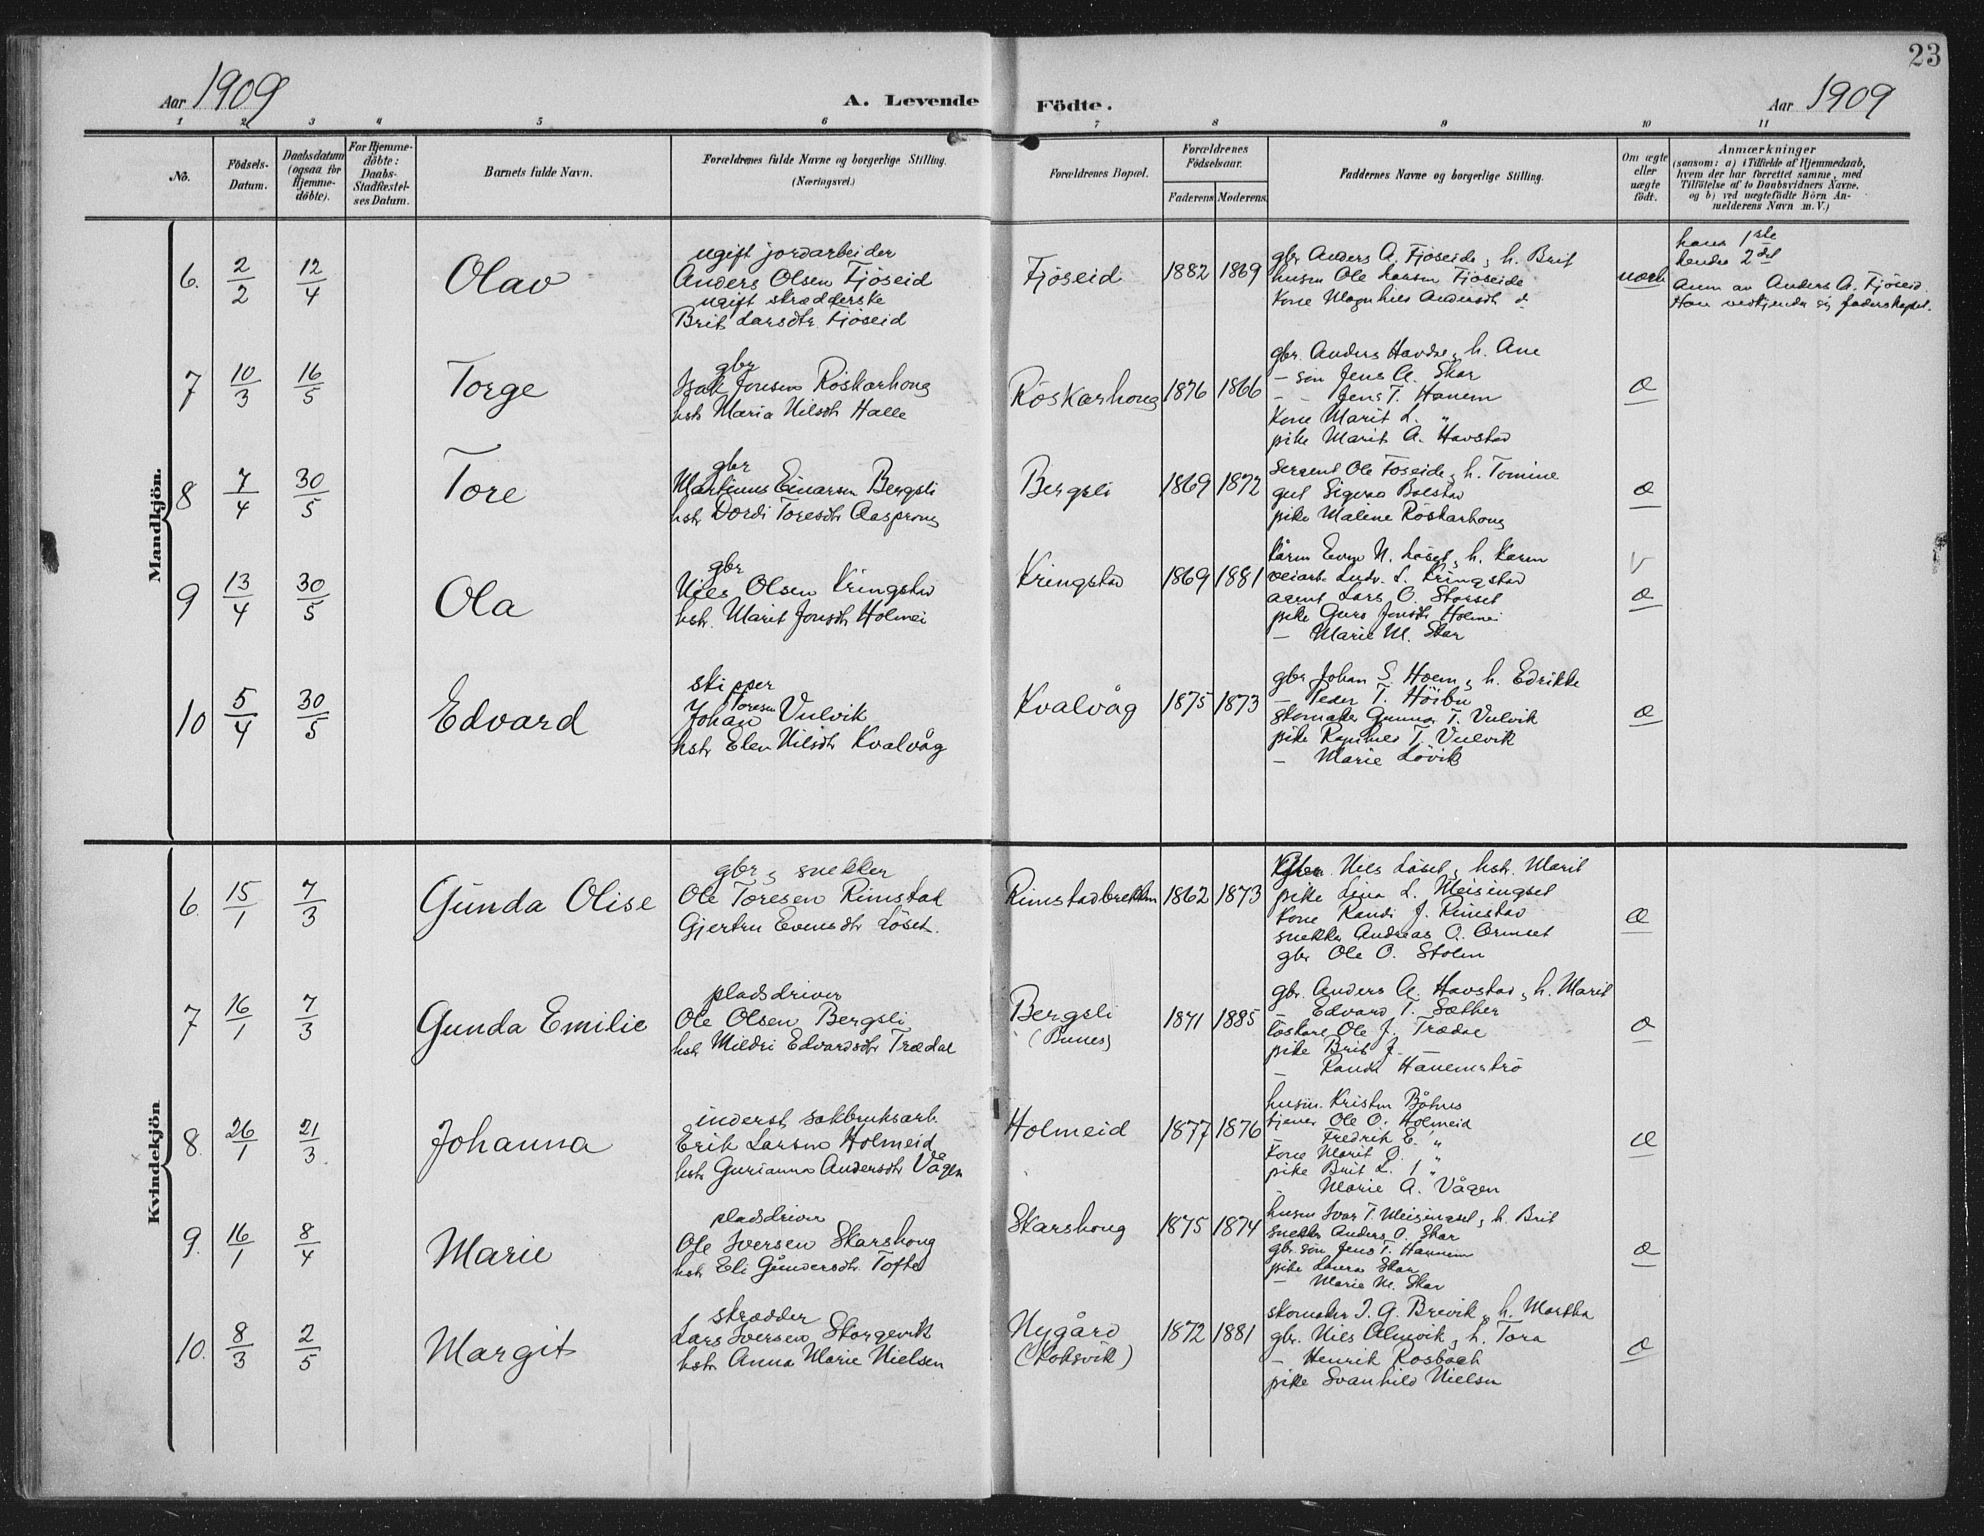 23
Aar 1909 A. Levende Födte. Aar 1909
1 2 3 4 5 6 7 8 9 10 11
No.
Födsels-Datum.
Daabsdatum (ogsaa for Hjemme-döbte).
For Hjemme-döbte: Daabs-Stadfæstel-ses Datum.
Barnets fulde Navn.
Forældrenes fulde Navne og borgerlige Stilling.
(Næringsvei.)
Forældrenes Bopæl.
Forældrenes Födselsaar.
Faderens Moderens
Faddernes Navne og borgerlige Stilling.
Om ægte eller uægte födt.
Anmærkninger
(saasom: a) i Tilfælde af Hjemmedaab,
hvem der har forrettet samme, med
Tilföielse af to Daabsvidners Navne,
og b) ved uægtefödte Börn An-
melderens Navn m. V.)
Mandkjön.
6. 2/2 12/4 Olav
ugift jordarbeider
Anders Olsen Fjöseid
ugift skrædderske
Brit Larsdtr. Fjöseid
Fjöseid 1882 1869
gbr Anders A. Fjöseide, h. Brit
husm Ole Larsen Fjöseide
Kone Magnhild Andersdt
uægte
hans 1ste
hendes 2det
Anm av Anders A. Fjöseid.
Han vedkjender sig faderskapet.
7 10/3 16/5 Torge
gbr
Isak Jonsen Röskarhoug
hstr Maria Nilsdtr Halle
Röskarhoug 1876 1866
gbr. Anders Havdal, h. Ane
- søn Jens A. Skar
- - Jens T. Hanem
Kone Marit L. "
pike Marit A. Havstad
æ
8 7/4 30/5 Tore
gbr
Martinus Einarsen Bergsli
hstr Dordi Toresdtr Aasprong
Bergsli 1869 1872
Sergent Ole Foseide, h. Tomine
gut Sigvad Bolstad
pike Malene Röskarhoug
æ
9 13/4 30/5 Ola
gbr
Nils Olsen Kringstad
hstr. Marit Jonsdtr Holmei
Kringstad 1869 1881
kårm Even N. Löset, h. Karen
veiarb. Ludv. L. Kringstad
agent Lars O. Storset
pike Guro Jonsdtr Holmei
- Marie M. Skar
v
æ
10 5/4 30/5 Edvard
skipper
Toresen
Johan Vulvik
hstr Elen Nilsdtr Kvalvåg
Kvalvåg 1875 1873
gbr Johan S. Hoem, h. Edrikke
- Peder T. Höibu
skomaker Gunnar T. Vulvik
pike Ragnhild T. Vulvik
- Marie Lövik
æ
Kvindekjön
6. 15/1 7/3 Gunda Olise
gbr, snekker
Ole Toresen Rimstad
Gjertru Evensdtr Löset.
Rimstadbrekken 1862 1873
Nils Löset, hstr. Marit
pike Lina L. Meisingset
Kone Randi J. Rimstad
snekker Andreas O. Ormset
gbr Ole O. Stolen
æ
7 16/1 7/3 Gunda Emilie
pladsdriver
Ole Olsen Bergsli
hstr Mildri Edvardsdtr Trædal
Bergsli
(Bunes)
1871 1885
gbr. Anders A. Havstad, h. Marit
- Edvard T. Sæther
löskarl Ole J. Trædal
pike Brit J. -
- Randi Hanemströ
æ
8. 26/1 21/3 Johanna
inderst, sakbruksarb.
Erik Larsen Holmeid
hstr Gurianna Andersdtr Vågen
Holmeid 1877 1876
husm. Kristen Båtnes
tjener Ole O. Holmeid
- Fredrik E. "
Kone Marit O. "
pike Brit L. "
- Marie A. Vågen
æ
9. 16/1 8/4 Marie
pladsdriver
Ole Iversen Skarshoug
hstr Eli Gundersdtr. Tofte
Skarshoug 1875 1874
husm Ivar T. Meisingset, h. Brit
snekker Anders O. Skar
gbr. søn Jens T. Hannem
pike Laura Skar
- Marie M. Skar
æ
10. 8/3 2/5 Margit
skrædder
Lars Iversen Storgevik
hstr Anna Marie Nielsen
Nygård
(Koksvik)
1872 1881
skomaker I. G. Brevik, h. Martha
gbr. Nils Almvik, h. Tora
- Henrik Rosbach
pike Svanhild Nielsen
æ